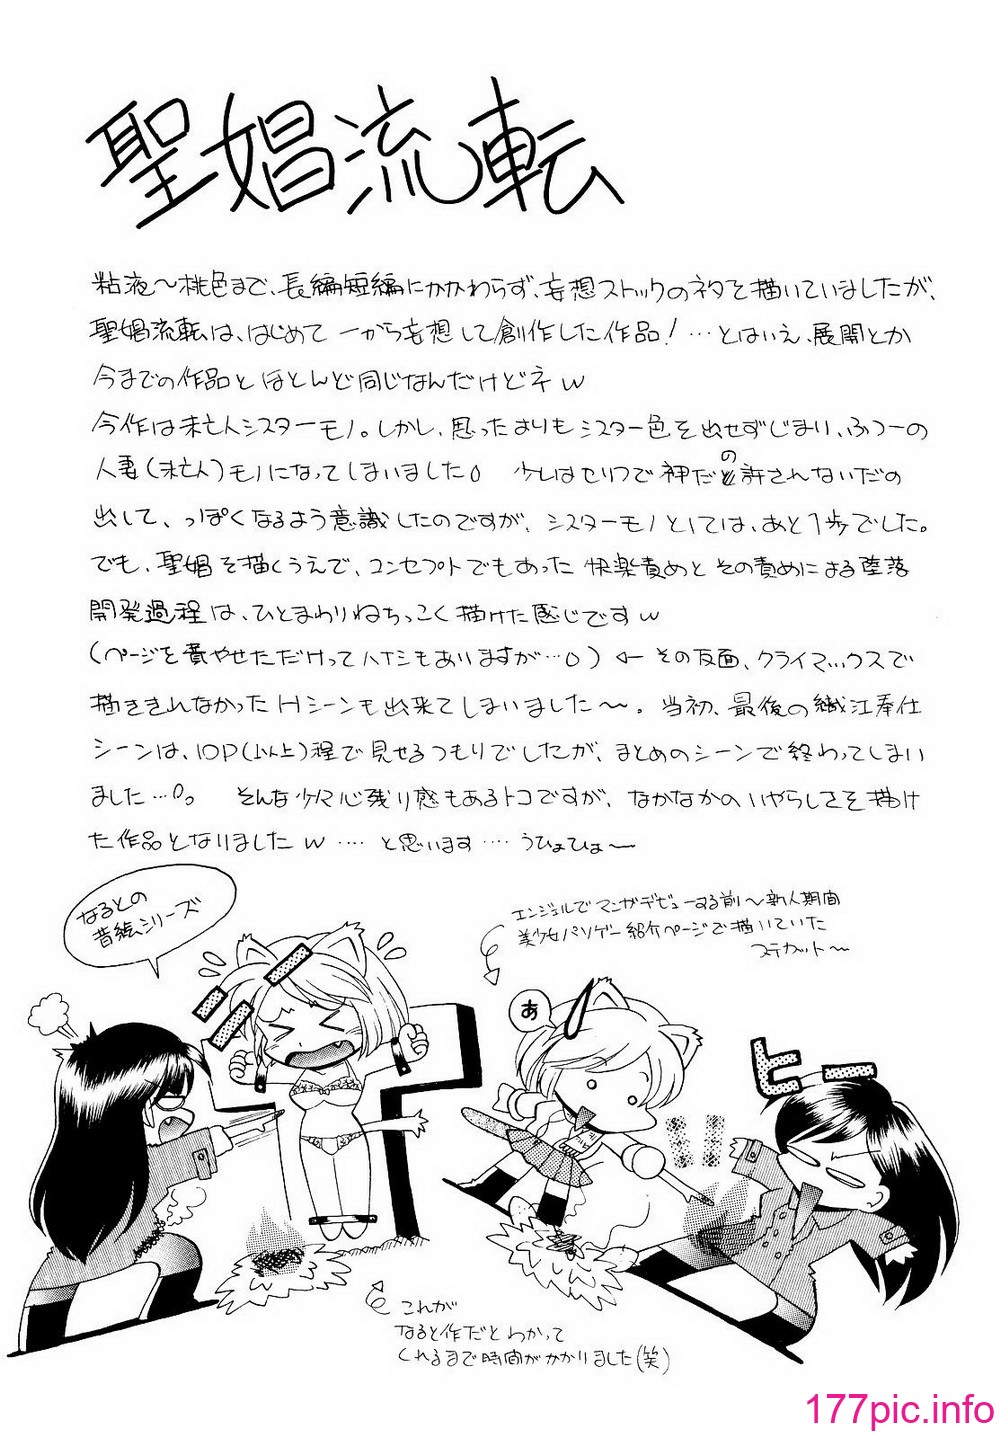 聖娼流転
粘液～桃色まで、長編短編にかかわらず、妄想ストックのネタを描いていましたが、
聖娼流転は、はじめて一から妄想して創作した作品！…とはいえ、展開とか
今までの作品とほとんど同じなんだけどネw
今作は未亡人シスターモノ。しかし、思ったよりもシスター色を出せずじまい、ふつーの
人妻(未亡人)モノになってしまいました。少しはセリフで神だの許されないだの
出して、っぽくなるよう意識したのですが、シスターモノとしては、あと1歩でした。
でも、聖娼を描くうえで、コンセプトでもあった快楽責めとその責めによる堕落
開発過程は、ひとまわりねちっこく描けた感じですw
(ページを費やせただけってハナシもありますが…。)←その反面、クライマックスで
描ききれなかったHシーンも出来てしまいました～。当初、最後の織江奉仕
シーンは、10P(以上)程で見せるつもりでしたが、まとめのシーンで終わってしまい
ました…。。そんな少々心残り感もあるトコですが、なかなかのいやらしさを描け
た作品となりましたw ‥‥と思います‥‥うひょひょ～
なるとの
昔絵シリーズ
エンジェルでマンガデビューする前～新人期間
美少女パソゲー紹介ページで描いていた
ステカット～
あ
ヒー
これが
なると作だとわかって
くれるまで時間がかかりました(笑)
177pic.info